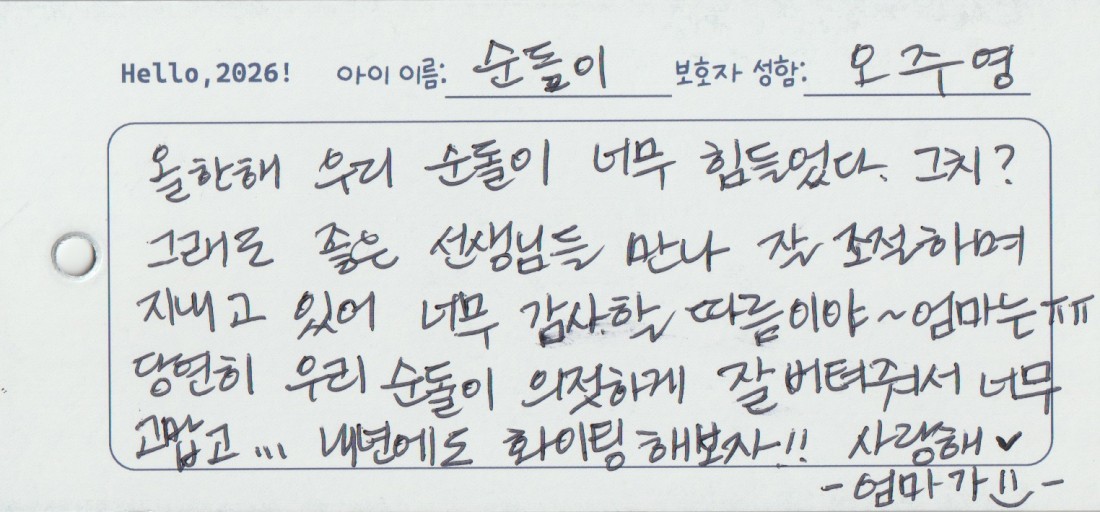 Hello,2026! 아이 이름: 순돌이 보호자 성함: 오주영
올한해 우리 순돌이 너무 힘들었다. 그치?
그래도 좋은 선생님들 만나 잘 조절하며
지내고 있어 너무 감사할 따름이야~엄마는ㅠㅠ
당연히 우리 순돌이 의젓하게 잘 버텨줘서 너무
고맙고... 내년에도 화이팅 해보자!! 사랑해♥
-엄마가 :)-